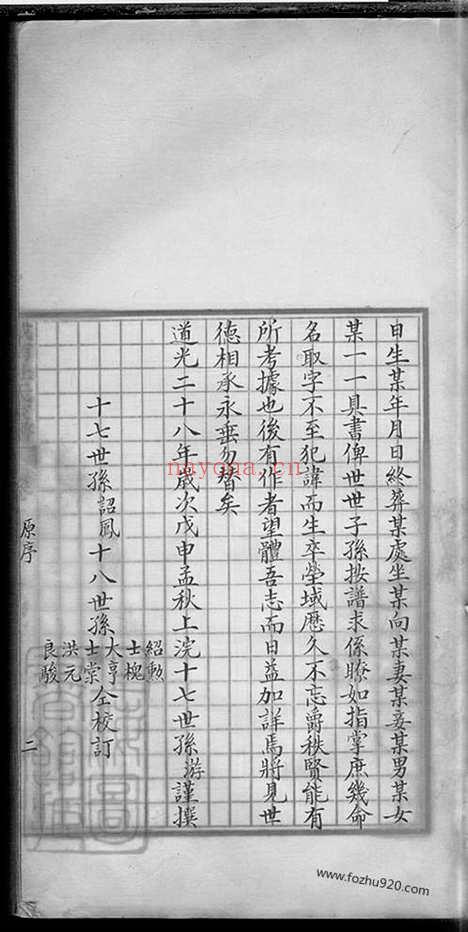 日生某年月日終葬某處坐某向某妻某妾某男某女
某一一具書俾世世子孫按譜求係瞭如指掌庶幾命
名取字不至犯諱而生卒塋域歷久不忘爵秩賢能有
所考據也後有作者望體吾志而日益加詳焉將見世
德相承永垂勿替矣
道光二十八年歲次戊申孟秋上浣十七世孫游謹撰
十七世孫詔鳳十八世孫
紹勲
士槐
大亨
士棠
洪元
良駿
仝校訂
原序
二
nayona.cn
www.fozhu920.com